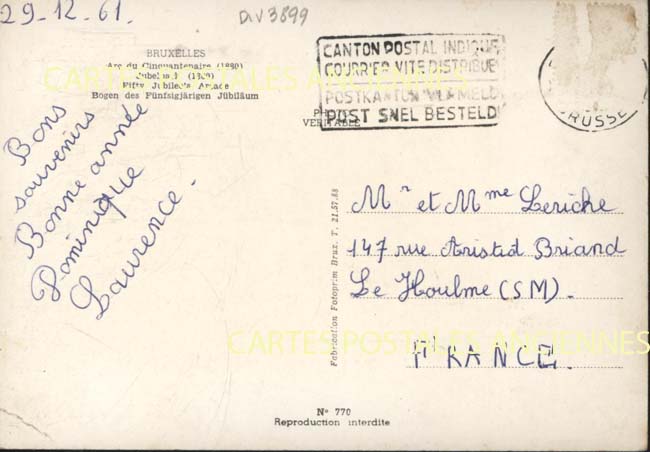 29-12-61.
DIV3899
BRUXELLES
Arc du Cinquantenaire (1880)
Jubelpark (1880)
Fifty Jubilee's Arcade
Bogen des Fünfsigjärigen Jübiläum
CANTON POSTAL INDIQUE
COURRIER VITE DISTRIBUE
POSTKANTON VERMELD
POST SNEL BESTELD
PHOTO
VERITABLE
RUSSE
CARTES POSTALES ANCIENNES
Bons
souvenirs
Bonne année
Dominique
Laurence.
Fabrication Fotoprim Brux. T. 21.57.88
Mr et Mme Leriche
147 rue Aristid Briand
Le Houlme (SM).
CARTES POSTALES ANCIENNES
FRANCE.
N° 770
Reproduction interdite